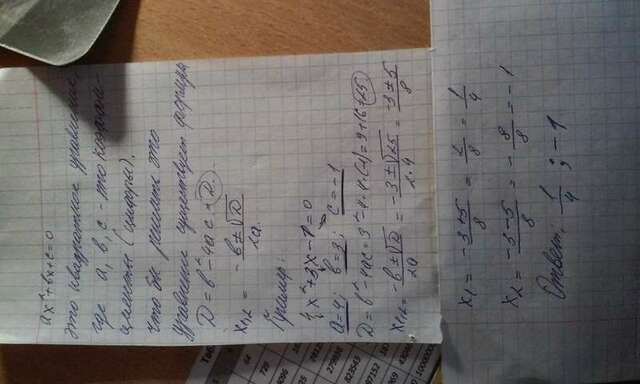 ax²+bx+c=0
это квадратное уравнение,
где a, b, c - это коэффи-
циенты (цифры).
Что бы решать это
уравнение существует формулы
D=b²-4ac=D.
x₁,₂ = -b±√D/2a
Пример:
4x²+3x-1=0
a=4; b=3; c=-1
D=b²-4ac=3²-4·4·(-1)=9+16=25
x₁,₂=-b±√D/2a=-3±√25/2·4=-3±5/8
x₁=-3+5/8=2/8=1/4
x₂=-3-5/8=-8/8=-1
Ответ: 1/4; -1